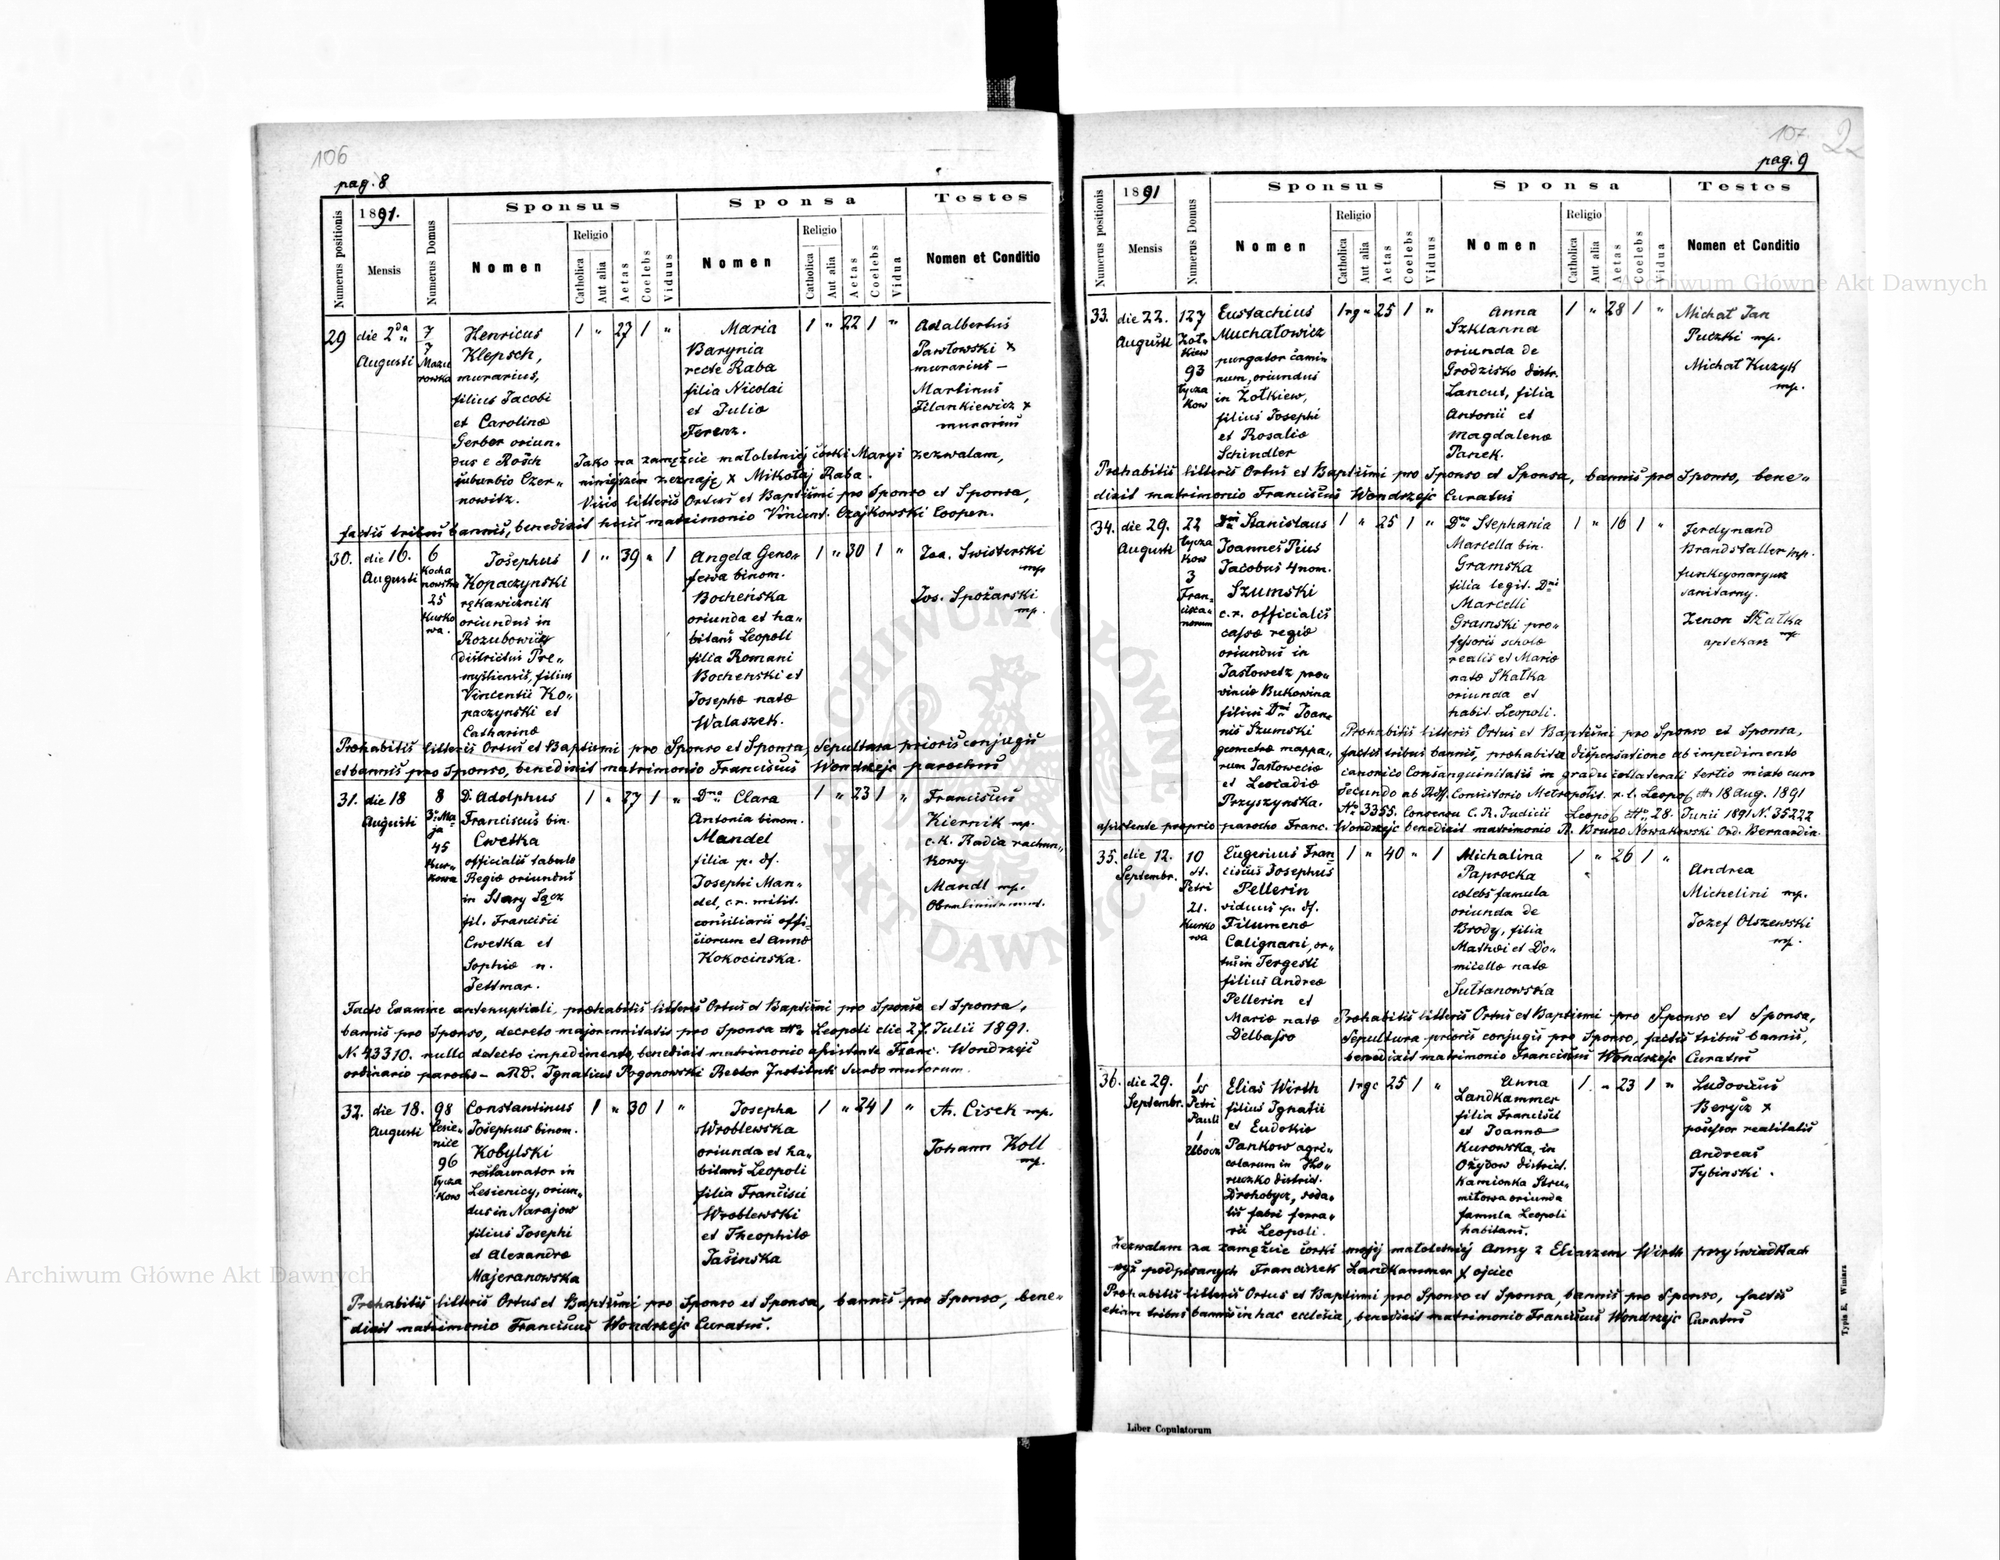 106
pag. 8
Numerus positionis
1891.
Mensis
Numerus Domus
Sponsus
Nomen
Religio
Catholica
Aut alia
Aetas
Coelebs
Viduus
Sponsa
Nomen
Religio
Catholica
Aut alia
Aetas
Coelebs
Vidua
Testes
Nomen et Conditio
29
die 2da
Augusti
7
7
Mazu
rowska
Henricus
Klepsch,
murarius,
filius Jacobi
et Carolinæ
Gerber oriun„
dus e Rosch
suburbio Czer„
nowitz.
1 „ 27 1 „
Maria
Barynia
recte Raba
filia Nicolai
et Juliæ
Ferenz.
1 „ 22 1 „
Adalbertus
Pawłowski x
murarius –
Martinus
Filankiewicz x
murarius
Jako na zamęźcie małoletniéj córki Maryi zezwalam,
niniejszem zeznaję x Mikołaj Raba.
Visis litteris Ortus et Baptismi pro Sponso et Sponsa,
factis tribus bannis, benedixit huic matrimonio Vincent. Czajkowski Coopen.
30.
die 16.
Augusti
6
Kocha
nowska
25
Kurko
wa.
Josephus
Kopaczynski
rękawicznik
oriundus in
Rozubowicz
districtus Pre„
mysliensis, filius
Vincentii Ko„
paczynski et
Catharinæ
1 „ 39 „ 1
Angela Geno„
fewa binom.
Bocheńska
oriunda et ha„
bitans Leopoli
filia Romani
Bochenski et
Josephæ natæ
Walaszek.
1 „ 30 1 „
Jan. Swisterski
mp
Jos. Spożarski
mp.
Præhabitis litteris Ortus et Baptismi pro Sponso et Sponsa, Sepultura prioris conjugis
et bannis pro Sponso, benedixit matrimonio Franciscus Wondrzejc parochus
31.
die 18
Augusti
8
3go Ma„
ja
45
Kur„
kowa
D. Adolphus
Franciscus bin.
Cwetka
officialis tabulæ
Regiæ oriundus
in Stary Sącz
fil. Francisci
Cwetka et
Sophiæ n.
Jettmar.
1 „ 27 1 „
Dna Clara
Antonia binom.
Mandel
filia p. df.
Josephi Man„
del, c.r. milit.
consiliarii offi„
ciorum et Annæ
Kokocinska.
1 „ 23 1 „
Franciscus
Kiernik mp.
c.k. Radca rachun„
kowy.
Mandl mp.
Facto Examine antenuptiali, præhabitis litteris Ortus et Baptismi pro Sponso et Sponsa,
bannis pro Sponso, decreto majorennitatis pro Sponsa dto Leopoli die 27. Julii 1891.
N. 43310. nullo detecto impedimento, benedixit matrimonio assistente Franc. Wondrzejc
ordinario parocho – ARD. Ignatius Pogonowski Rector Instituti Surdo mutorum.
32.
die 18.
Augusti
98
Lesie„
nice
96
Łycza
kow
Constantinus
Josephus binom.
Kobylski
restaurator in
Lesienicy, oriun„
dus in Narajow
filius Josephi
et Alexandræ
Majeranowska
1 „ 30 1 „
Josepha
Wroblewska
oriunda et ha„
bitans Leopoli
filia Francisci
Wroblewski
et Theophilæ
Jasinska
1 „ 24 1 „
A. Cisek mp.
Johann Koll
mp.
Præhabitis litteris Ortus et Baptismi pro Sponso et Sponsa, bannis pro Sponso, bene„
dixit matrimonio Franciscus Wondrzejc Curatus.
107. 2
pag. 9
Numerus positionis
1891
Mensis
Numerus Domus
Sponsus
Nomen
Religio
Catholica
Aut alia
Aetas
Coelebs
Viduus
Sponsa
Nomen
Religio
Catholica
Aut alia
Aetas
Coelebs
Vidua
Testes
Nomen et Conditio
33.
die 22.
Augusti
127
Żoł„
kiew
93
Łycza
kow
Eustachius
Muchałowicz
purgator cami„
num, oriundus
in Żołkiew,
filius Josephi
et Rosaliæ
Schindler
1 rg „ 25 1 „
Anna
Szklanna
oriunda de
Grodzisko distr.
Lancut, filia
Antonii et
Magdalenæ
Panek.
1 „ 28 1 „
Michał Jan
Puczki mp.
Michał Kuzyk
mp.
Præhabitis litteris Ortus et Baptismi pro Sponso et Sponsa, bannis pro Sponso, bene„
dixit matrimonio Franciscus Wondrzejc Curatus
34.
die 29.
Augusti
22
Łycza
kow
3
Fran„
cisca„
norum
Dnus Stanislaus
Joannes Pius
Jacobus 4nom.
Szumski
c.r. officialis
cassæ regiæ
oriundus in
Jasłowetz pro„
vinciæ Bukowina
filius Dni Joan„
nis Szumski
geometræ mappa„
rum Jasłoweciæ
et Leocadiæ
Przyszynska.
1 „ 25 1 „
Dna Stephania
Marcella bin.
Gramska
filia legit. Dni
Marcelli
Gramski pro„
fessoris scholæ
realis et Mariæ
natæ Skałka
oriunda et
habit. Leopoli.
1 „ 16 1 „
Ferdynand
Brandstatter mp.
funkcyonaryusz
sanitarny.
Zenon Skałka
aptekarz mp
Præhabitis litteris Ortus et Baptismi pro Sponso et Sponsa,
factis tribus bannis, præhabita dispensatione ab impedimento
canonico Consanguinitatis in gradu collaterali tertio mixto cum
secundo ab Rdss. Consistorio Metropolit. r. l. Leopol. dt. 18 Aug. 1891
No 3355. Consensu C. R. Judicii Leopol. dto. 28. Junii 1891 N. 35222
assistente proprio parocho Franc. Wondrzejc benedixit matrimonio R. Bruno Nowakowski Ord. Bernardin.
35.
die 12.
Septembr.
10
St.
Petri
21.
Kurko
wa
Eugenius Fran„
ciscus Josephus
Pellerin
viduus p. df.
Filumenæ
Calignani, or„
tus in Tergesti
filius Andreæ
Pellerin et
Mariæ natæ
Delbasso
1 „ 40 „ 1
Michalina
Paprocka
cœlebs famula
oriunda de
Brody, filia
Mathæi et Do„
micellæ natæ
Sułtanowska
1 „ 26 1 „
Andrea
Michelini mp.
Jozef Olszewski
mp.
Præhabitis litteris Ortus et Baptismi pro Sponso et Sponsa,
Sepultura prioris conjugis pro Sponso, factis tribus bannis,
benedixit matrimonio Franciscus Wondrzejc Curatus
36.
die 29.
Septembr.
1
SS
Petri
Pauli
1
Elias Wirth
filius Ignatii
et Eudokiæ
Pankow agri„
colarum in Ho„
rucko district.
Drohobycz, soda„
lis fabri ferra„
rii Leopoli.
1 rgc 25 1 „
Anna
Landkammer
filia Francisci
et Joannæ
Kurowska, in
Ożydow district.
Kamionka Stru„
miłowa oriunda
famula Leopoli
habitans.
1 „ 23 1 „
Ludovicus
Berycz x
possessor realitatis
Andreas
Tybinski.
Zezwalam na zamęźcie córki mojéj małoletniéj Anny z Eliaszem Wirth przy świadkach
niżéj podpisanych Franciszek Landkammer x ojciec
Præhabitis litteris Ortus et Baptismi pro Sponso et Sponsa, bannis pro Sponso, factis
etiam tribus bannis in hac ecclesia, benedixit matrimonio Franciscus Wondrzejc Curatus
Typis E. Winiarz
Liber Copulatorum
Archiwum Główne Akt Dawnych
Archiwum Główne Akt Dawnych
ARCHIWUM GŁÓWNE
AKT DAWNYCH